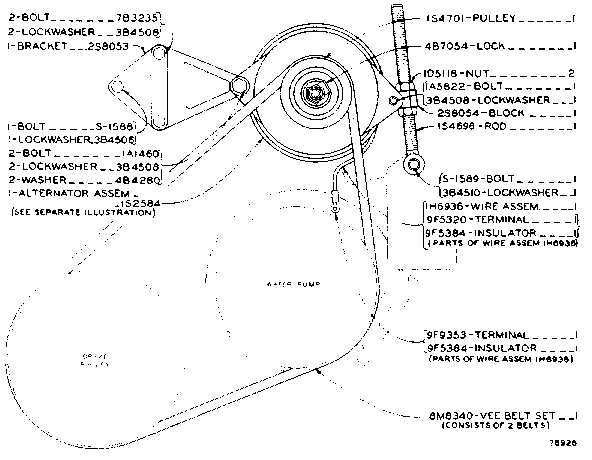 2-BOLT____7B3235
2-LOCKWASHER__3B4508
1-BRACKET__2S8053
1-BOLT____S-1588
1-LOCKWASHER_3B4506
2-BOLT____1A1460
2-LOCKWASHER__3B4508
2-WASHER___4B4280
1-ALTERNATOR ASSEM__
1S2584
(SEE SEPARATE ILLUSTRATION)
1S4701-PULLEY____1
4B7054-LOCK____1
1D5118-NUT____2
1A5822-BOLT____1
3B4508-LOCKWASHER__1
2S8054-BLOCK___1
1S4698-ROD____1
S-1589-BOLT___1
3B4510-LOCKWASHER__1
1H6936-WIRE ASSEM___1
9F5320-TERMINAL___1
9F5384-INSULATOR___1
(PARTS OF WIRE ASSEM 1H6936)
WATER PUMP
DRIVE
PULLEY
9F9353-TERMINAL____1
9F5384-INSULATOR___1
(PARTS OF WIRE ASSEM 1H6936)
8M8340-VEE BELT SET__1
(CONSISTS OF 2 BELTS)
78926